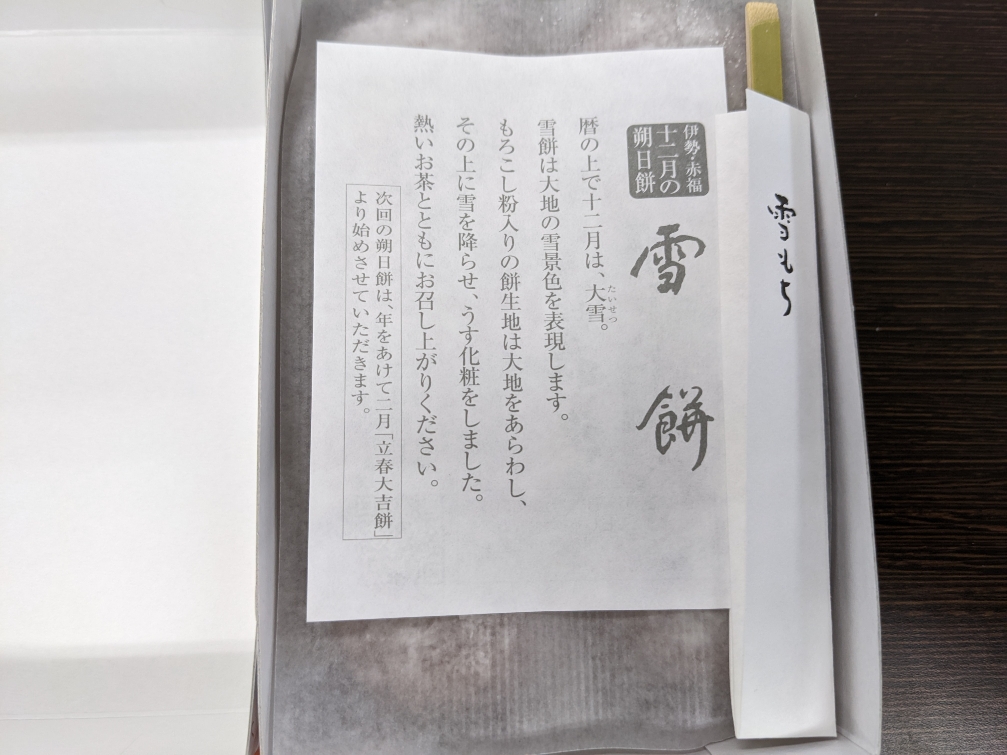 伊勢・赤福
十二月の
朔日餅
雪餅
暦の上で十二月は、大雪。
たいせつ
雪餅は大地の雪景色を表現します。
もろこし粉入りの餅生地は大地をあらわし、
その上に雪を降らせ、うす化粧をしました。
熱いお茶とともにお召し上がりください。
次回の朔日餅は、年をあけて二月「立春大吉餅」
より始めさせていただきます。
雪もち